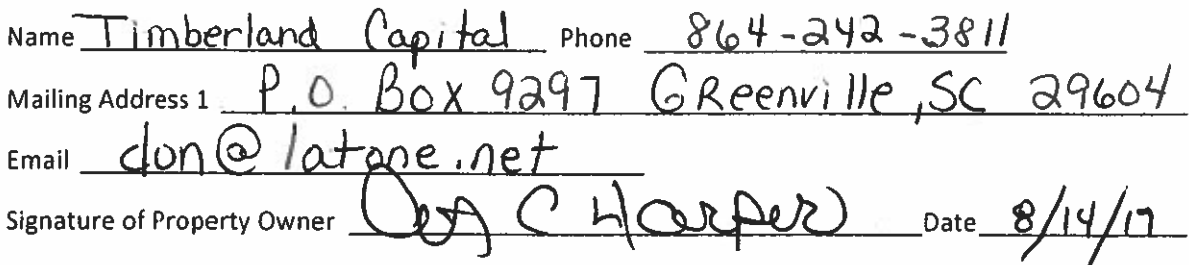 Name Timberland Capital Phone 864-242-3811
Mailing Address 1 P.O. Box 9297 GReenville, SC 29604
Email don@latone.net
Signature of Property Owner C Harper Date 8/14/17